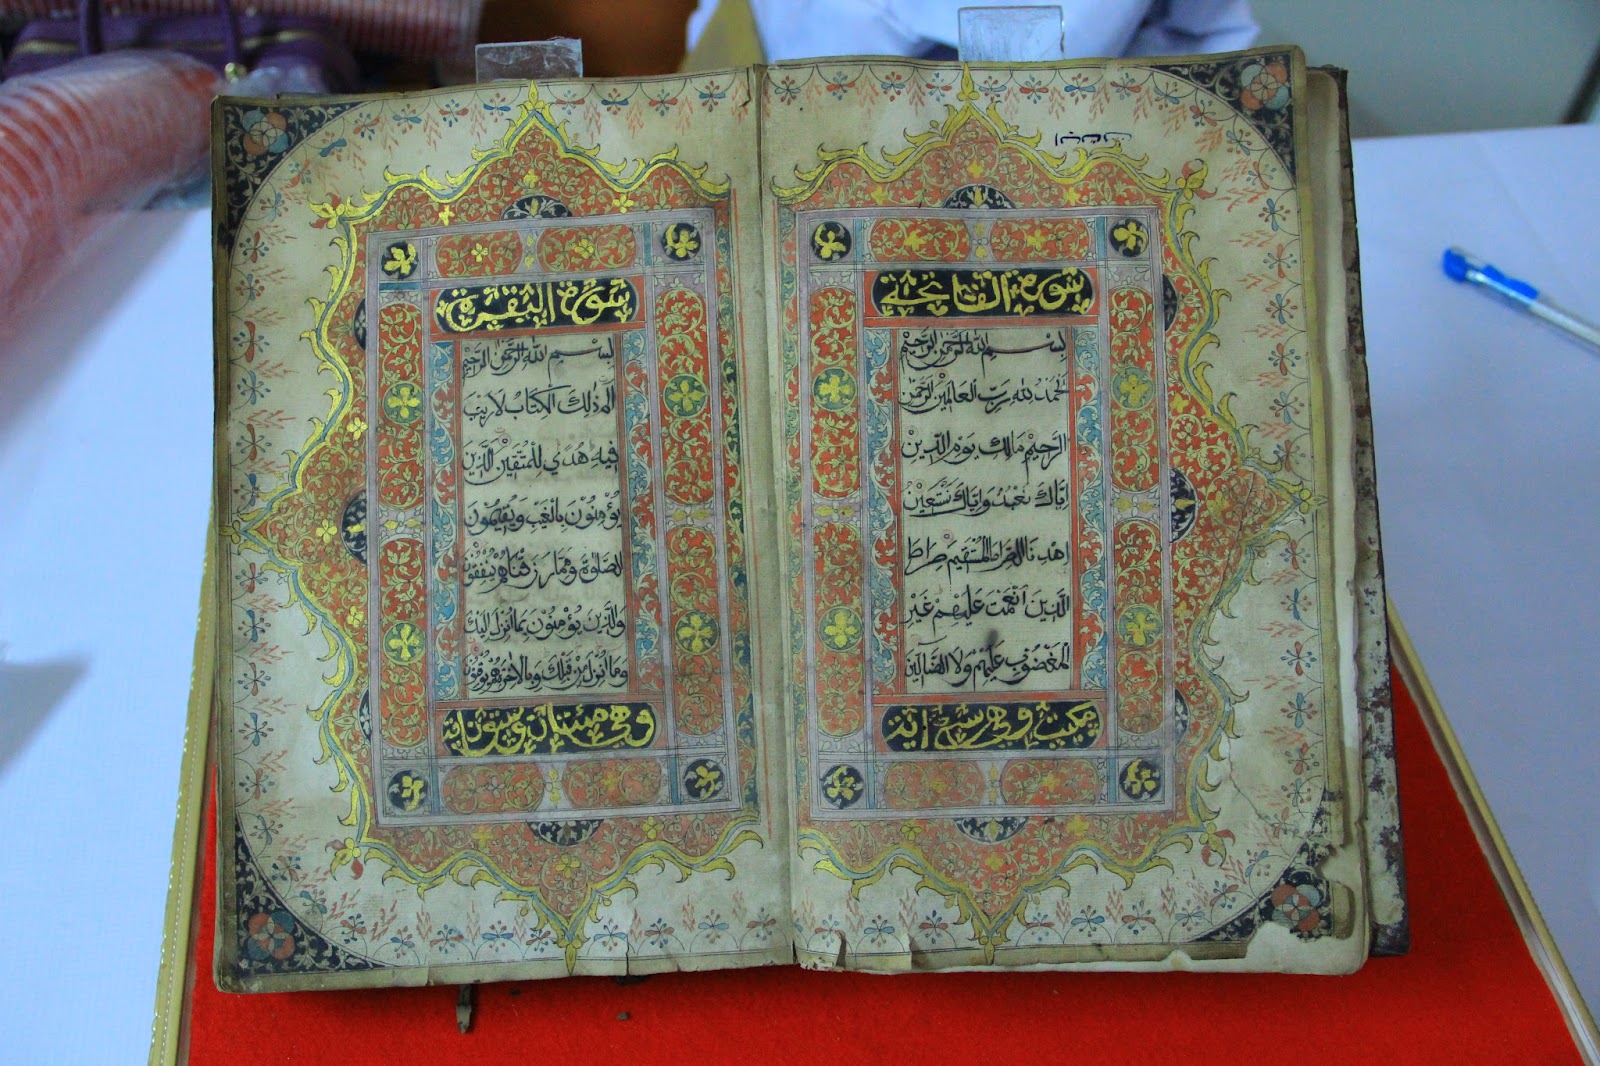 سورة الفاتحة
بسم الله الرحمن الرحيم
الحمد لله رب العالمين الرحمن
الرحيم مالك يوم الدين
اياك نعبد واياك نستعين
اهدنا الصراط المستقيم صراط
الذين انعمت عليهم غير
المغضوب عليهم ولا الضالين
وهي سبع اية
سورة البقرة
بسم الله الرحمن الرحيم
الم ذلك الكتاب لا ريب
فيه هدي للمتقين الذين
يؤمنون بالغيب ويقيمون
الصلوة ومما رزقناهم ينفقون
والذين يؤمنون بما انزل اليك
وما انزل من قبلك وبالاخرة هم يوقنون
وهي اية